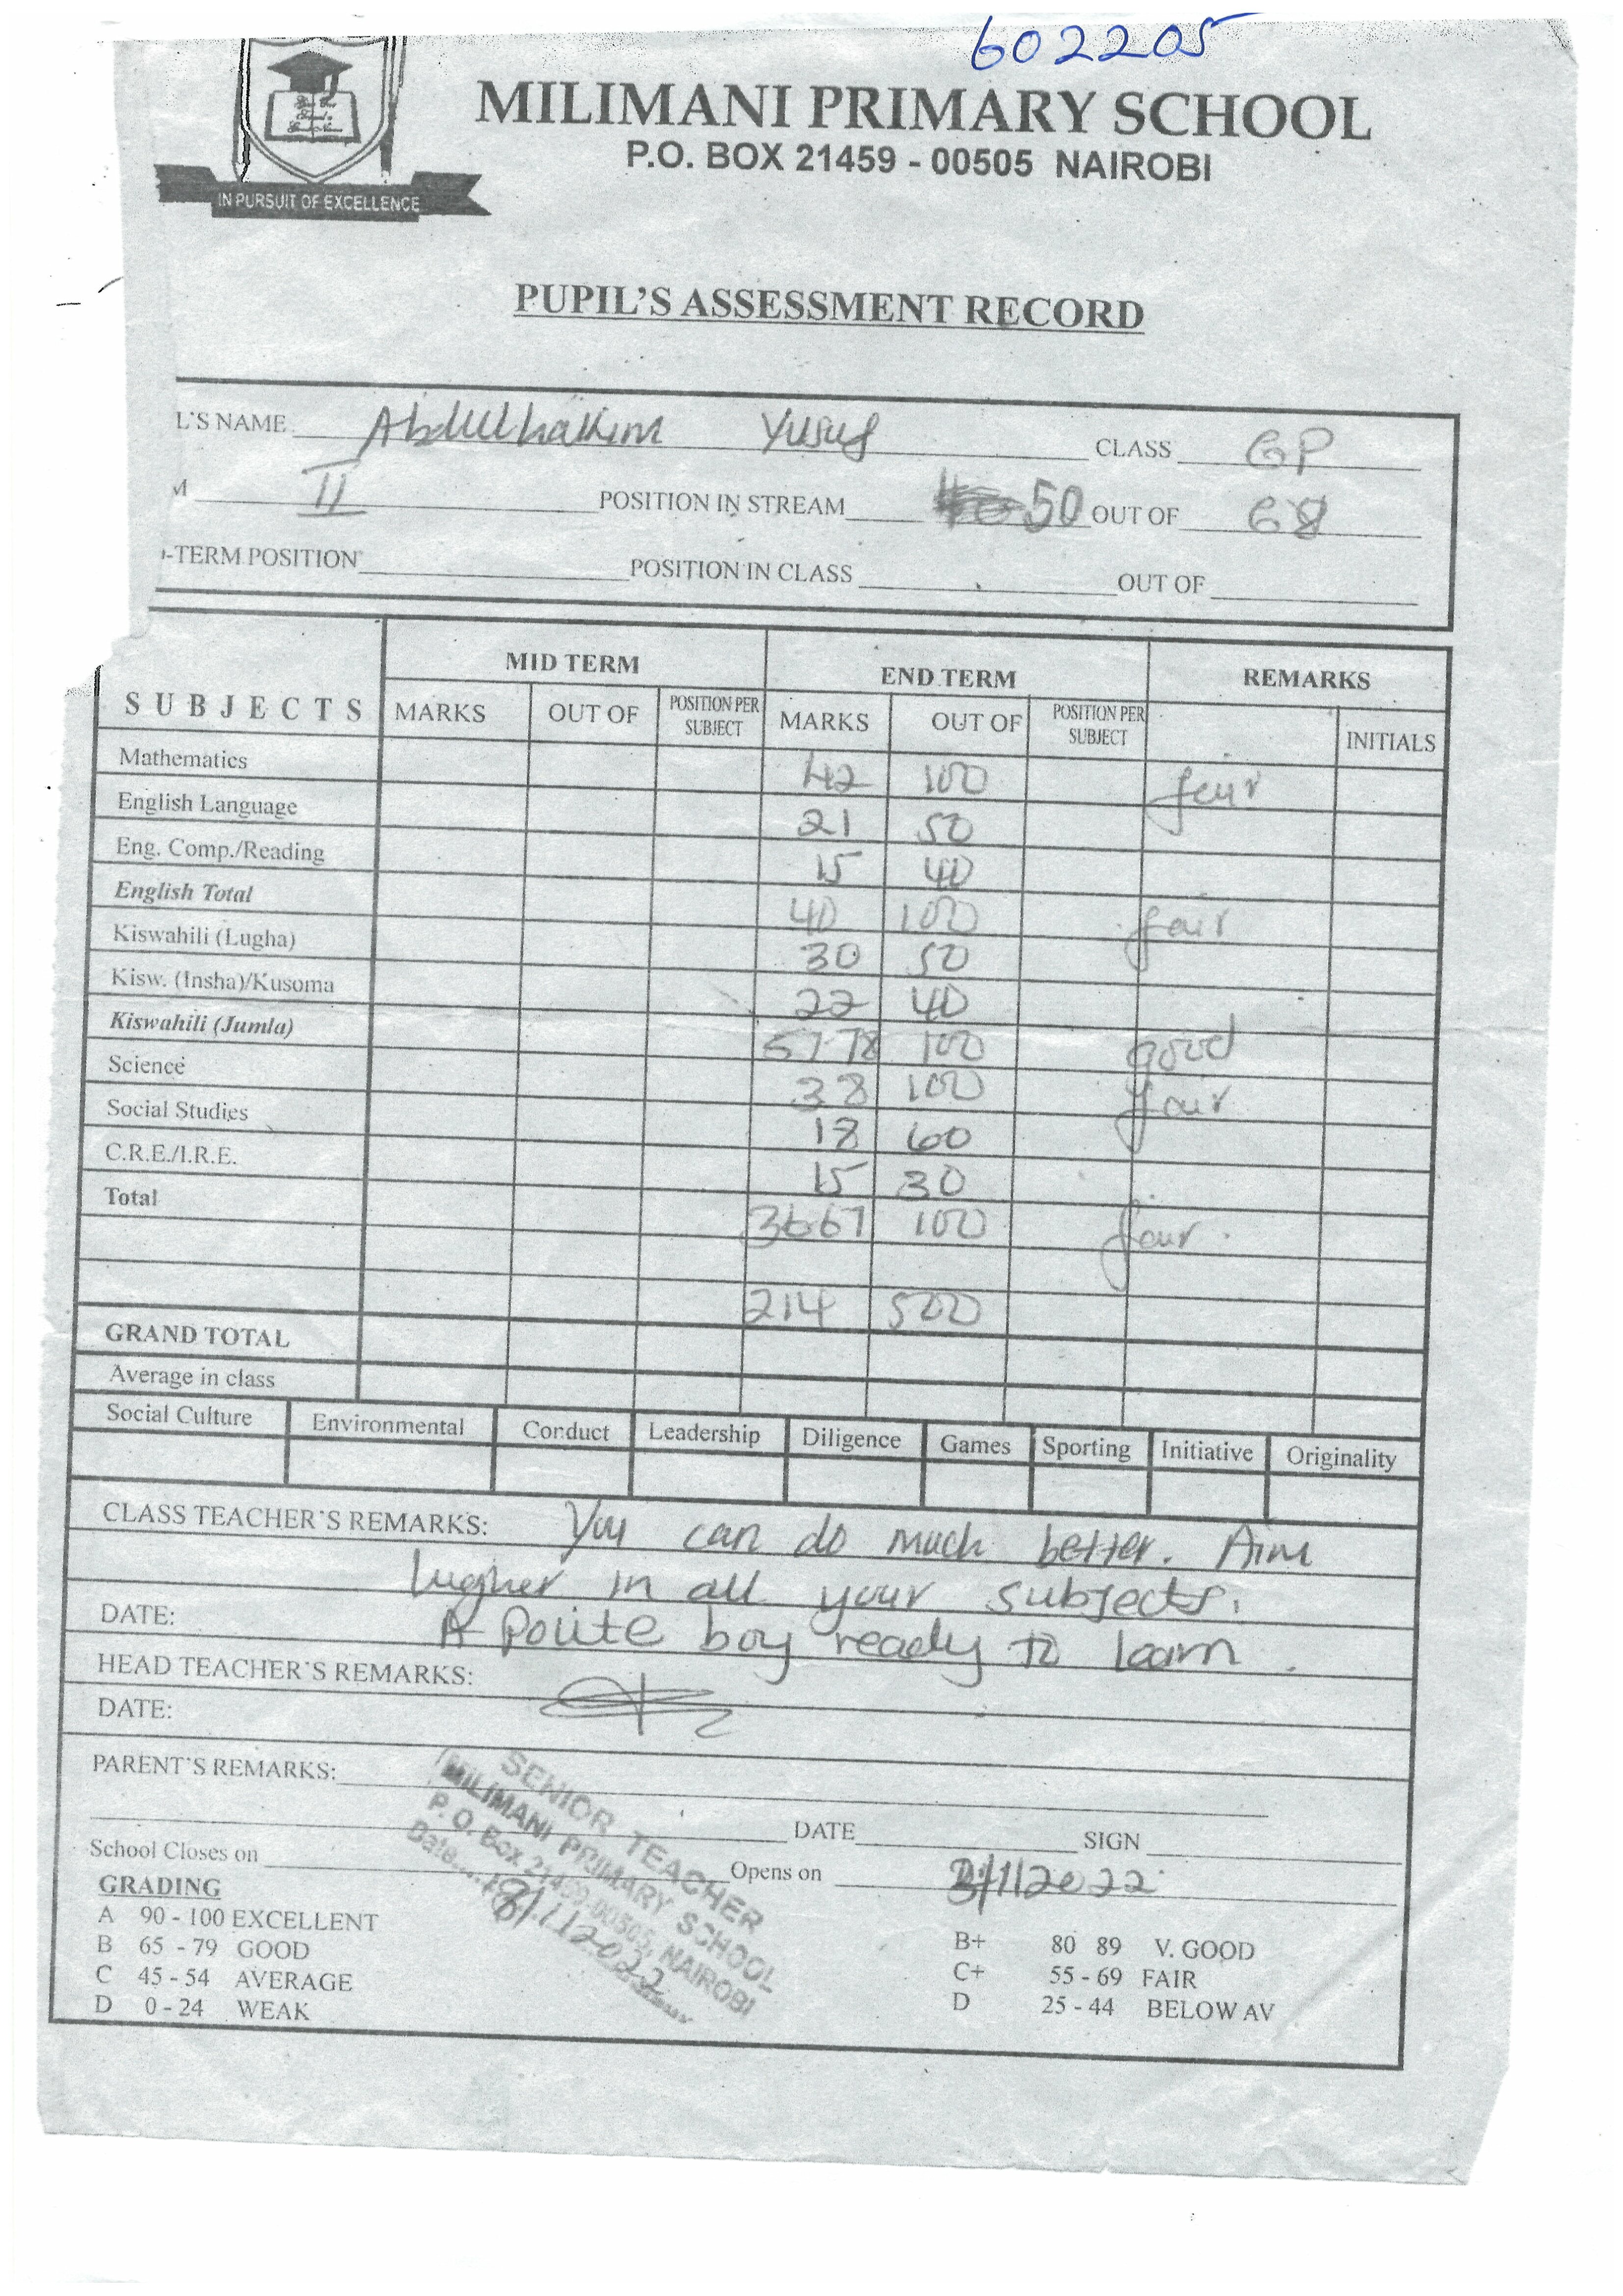 602205
IN PURSUIT OF EXCELLENCE
MILIMANI PRIMARY SCHOOL
P.O. BOX 21459 - 00505 NAIROBI
PUPIL'S ASSESSMENT RECORD
L'S NAME Abdulhakim Yusuf CLASS 6P
M II POSITION IN STREAM 50 OUT OF 68
-TERM POSITION POSITION IN CLASS OUT OF
SUBJECTS MID TERM END TERM REMARKS
MARKS OUT OF POSITION PER SUBJECT MARKS OUT OF POSITION PER SUBJECT INITIALS
Mathematics 42 100 fair
English Language 21 50
Eng. Comp./Reading 15 40
English Total 40 100 fair
Kiswahili (Lugha) 30 50
Kisw. (Insha)/Kusoma 22 40
Kiswahili (Jumla) 57.78 100 good
Science 38 100 fair
Social Studies 18 60
C.R.E./I.R.E. 15 30
Total 36.67 100 fair
214 500
GRAND TOTAL
Average in class
Social Culture Environmental Conduct Leadership Diligence Games Sporting Initiative Originality
CLASS TEACHER'S REMARKS: You can do much better. Aim
higher in all your subjects.
DATE:
A polite boy ready to learn.
HEAD TEACHER'S REMARKS:
DATE:
PARENT'S REMARKS:
DATE SIGN
School Closes on Opens on /1/2022
SENIOR TEACHER
MILIMANI PRIMARY SCHOOL
P. O. Box 21459-00505, NAIROBI
Date 18/1/2022
GRADING
A 90 - 100 EXCELLENT
B 65 - 79 GOOD
C 45 - 54 AVERAGE
D 0 - 24 WEAK
B+ 80 89 V. GOOD
C+ 55 - 69 FAIR
D 25 - 44 BELOW AV